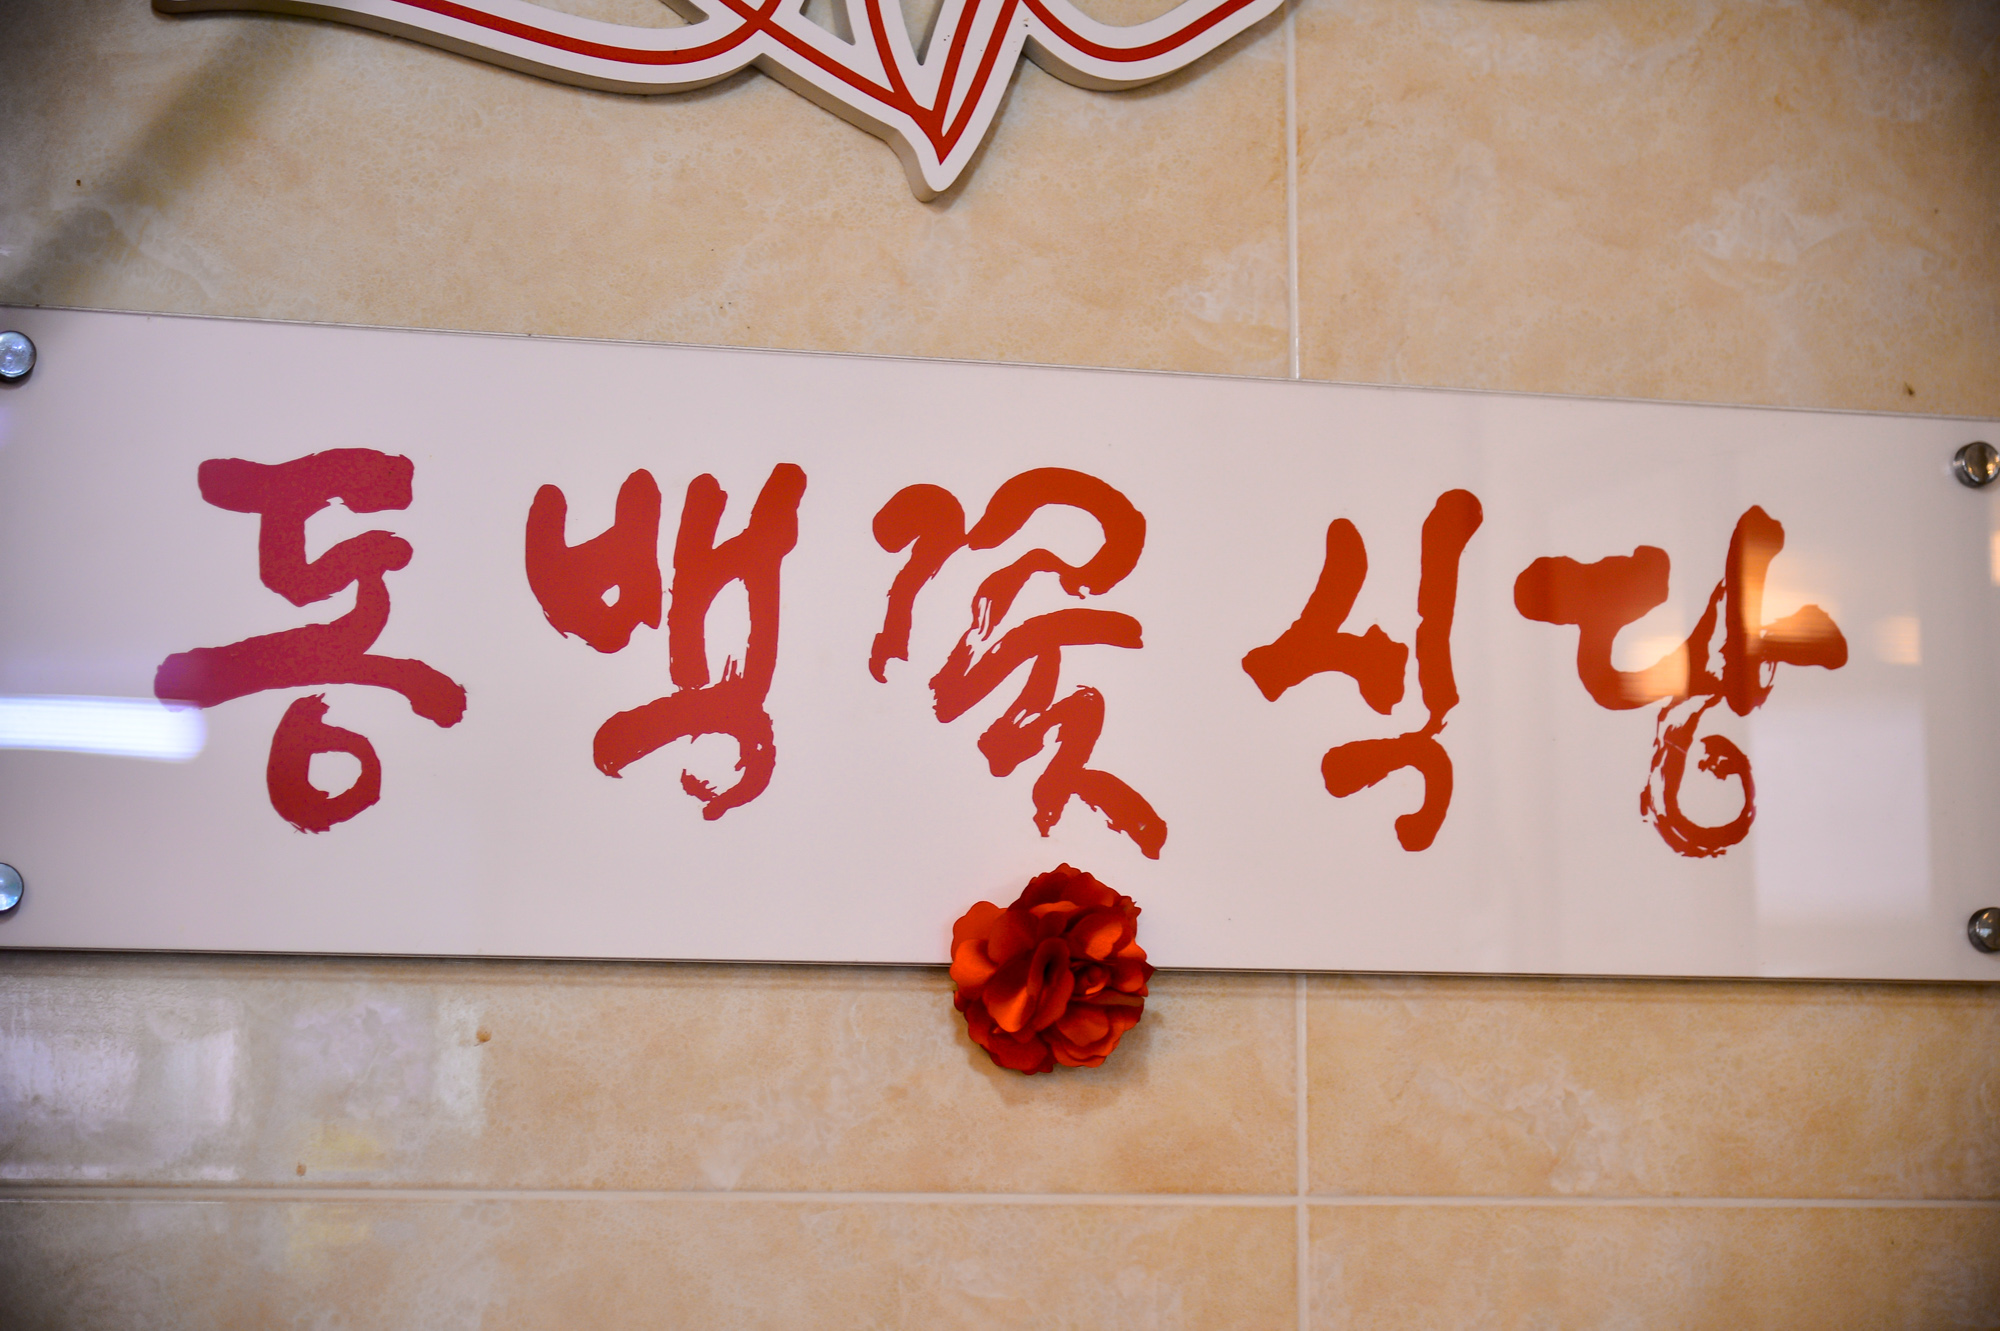 동백꽃식당